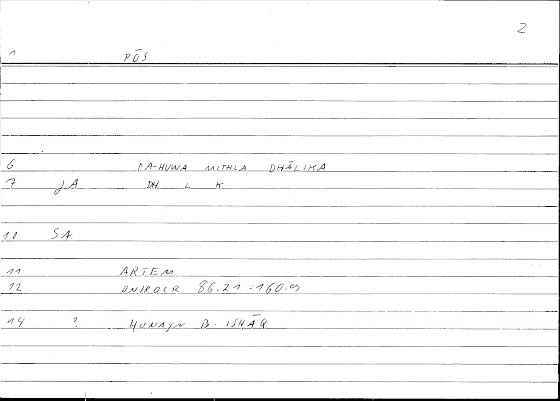 2
1 PŌS
6 FA-HUWA MITHLA DHĀLIKA
7 JA DH L K
10 SA
11 ARTEM
12 ONIROCR 86.21 - 160.9
14 ? HUNAYN B. ISHĀQ